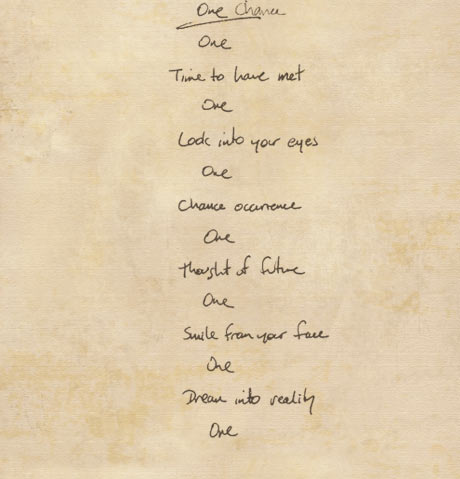 One Chance
One
Time to have met
One
Look into your eyes
One
Chance occurrence
One
thought of future
One
Smile from your face
One
Dream into reality
One